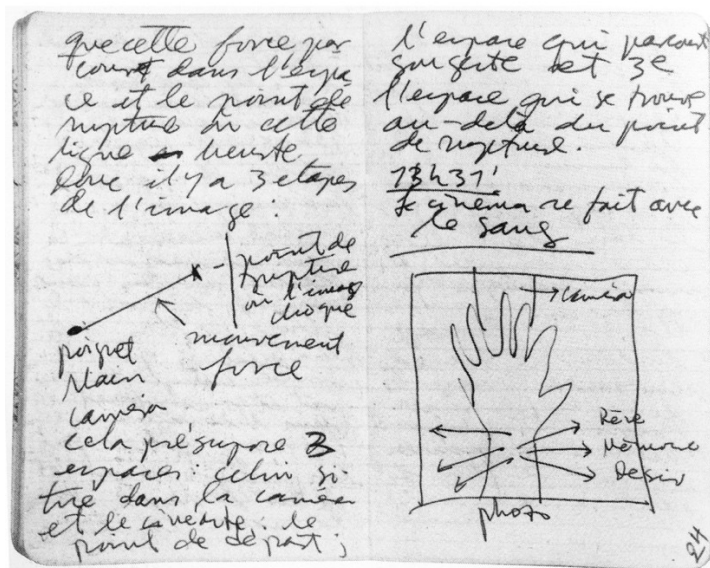 que cette force par
court dans l'espa
ce et le point de
rupture où cette
ligne heurte.
Donc il y a 3 étapes
de l'image :
point de
rupture
où l'image
choque
mouvement
force
poignet
Main
camera
cela présuppose 3
espaces : celui si
tué dans la caméra
et le cinéaste : le
point de départ ;
l'espace qui parcourt
son geste et 3e
l'espace qui se trouve
au-delà du point
de rupture.
13h31'
Le cinéma se fait avec
le sang
caméra
Rêve
Mémoire
Desir
photo
24